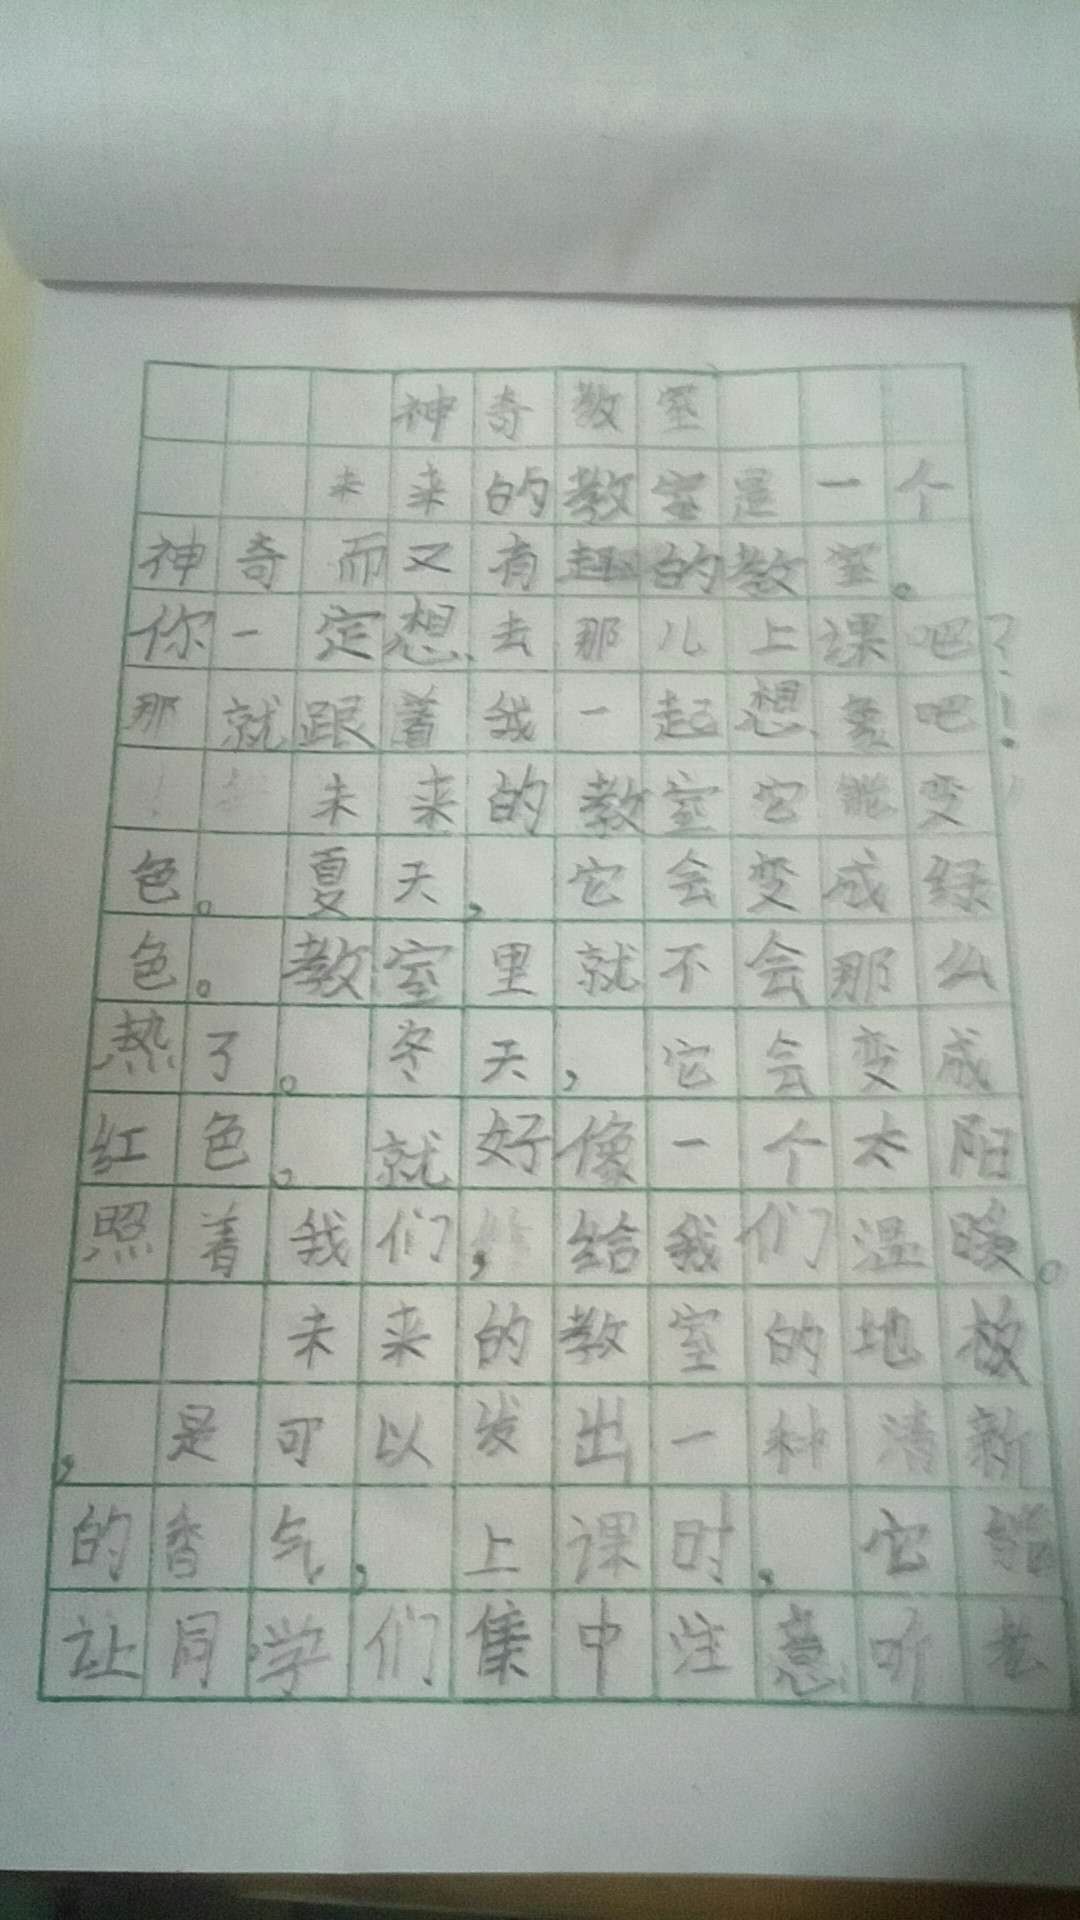 神奇教室
未来的教室是一个
神奇而又有趣的教室。
你一定想去那儿上课吧?
那就跟着我一起想象吧!
未来的教室它能变
色。夏天,它会变成绿
色。教室里就不会那么
热了。冬天,它会变成
红色。就好像一个太阳
照着我们,给我们温暖。
未来的教室的地板
,是可以发出一种清新
的香气,上课时,它能
让同学们集中注意听老